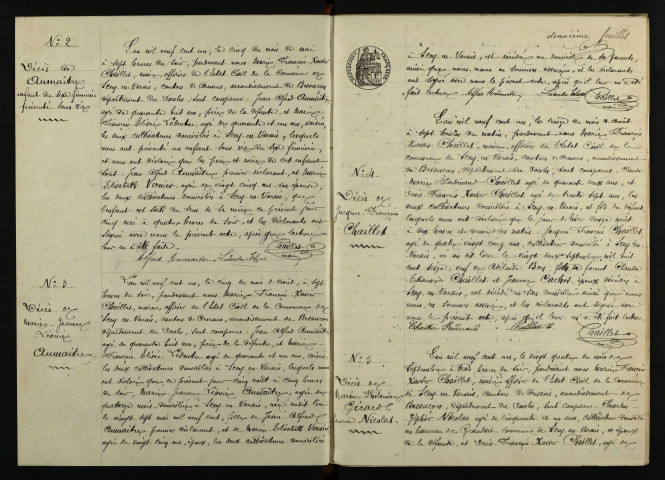 N° 2
Décès de
Aumaitre
enfant du sexe féminin
présenté sans vie
L'an mil neuf cent un, le cinq du mois de mai
à sept heures du soir, pardevant nous Marie François Xavier
Chaillet, maire, officier de l'état civil de la commune de
Scey en Varais, canton d'Ornans, arrondissement de Besançon
département du Doubs, sont comparus : Jean Alfred Aumaitre
agé de quarante huit ans, père de la défunte, et Marie
François Elisée agé de quarante et un ans, voisin,
les deux cultivateurs domiciliés à Scey en Varais, lesquels
nous ont présenté un enfant sans vie du sexe féminin,
et nous ont déclaré que les père et mère de cet enfant
sont : Jean Alfred Aumaitre premier déclarant, et Marie
Elisabeth Vernier agée de vingt cinq ans son épouse,
les deux cultivateurs domiciliés à Scey en Varais, que
l'enfant est sorti du sein de sa mère ce présent jour
cinq mai à quatre heures du soir, et les déclarants ont
signé avec nous le présent acte, après que lecture
leur en a été faite.
Alfred Aumaitre
Chaillet
maire
N° 3
Décès de
Marie Jeanne
Léonie
Aumaitre
L'an mil neuf cent un, le cinq du mois d'août, à sept
heures du soir, pardevant nous Marie François Xavier
Chaillet, maire, officier de l'état civil de la commune de
Scey en Varais canton d'Ornans, arrondissement de Besançon
département du Doubs, sont comparus : Jean Alfred Aumaitre
agé de quarante huit ans, père de la défunte, et Marie
François Elisée agé de quarante et un ans, voisin,
les deux cultivateurs domiciliés à Scey en Varais, lesquels nous
ont déclaré que ce présent jour cinq août à cinq heures
du soir, Marie Jeanne Léonie Aumaitre, agée de
quatorze mois, domiciliée à Scey en Varais, née audit lieu
le vingt sept mai mil neuf cent, fille de Jean Alfred
Aumaitre premier déclarant, et de Marie Elisabeth Vernier
agée de vingt cinq ans, époux, les deux cultivateurs domiciliés
deuxième feuillet
à Scey en Varais, est décédée au domicile de ses parents,
ainsi que nous nous en sommes assuré, et les déclarants
ont signé avec nous le présent acte, après qu'il leur en a été
fait lecture. Alfred Aumaitre
Chaillet
maire
N° 4
Décès de
Jacques François
Chaillet
L'an mil neuf cent un, le treize du mois d'août
à sept heures du matin, pardevant nous Marie François
Xavier Chaillet, maire, officier de l'état civil de la
commune de Scey en Varais, canton d'Ornans, arrondissement
de Besançon, département du Doubs, sont comparus :
Marie Ferdinand Chaillet agé de quarante deux ans, et
Denis François Xavier Chaillet agé de trente sept ans,
les deux cultivateurs domiciliés à Scey en Varais et fils du défunt
lesquels nous ont déclaré que le jour d'hier douze août
à dix heures du matin, Jacques François Chaillet
agé de quatre vingt cinq ans, cultivateur domicilié à Scey en
Varais, né en dit lieu le vingt sept septembre mil huit
cent seize, veuf de Adélaïde Boy, fils de Claude
Etienne Chaillet et Jeanne Cachot, domiciliés à
Scey en Varais, est décédé en son domicile ainsi que nous
nous en sommes assuré, et les déclarants ont signé avec
nous le présent acte, après qu'il leur en a été fait lecture
Chaillet Ferdinand Chaillet X.
Chaillet
maire
N° 5
Décès de
Girard
Nicolas
L'an mil neuf cent un, le vingt quatre du mois de
septembre à trois heures du soir, pardevant nous Marie François
Xavier Chaillet, maire officier de l'état civil de la commune
de Scey en Varais, canton d'Ornans, arrondissement de
Besançon, département du Doubs, sont comparus Charles
Nicolas agé de cinquante et un ans, cultivateur domicilié
au hameau de commune de Scey en Varais, et époux
de la défunte, et Denis François Xavier Chaillet, agé de